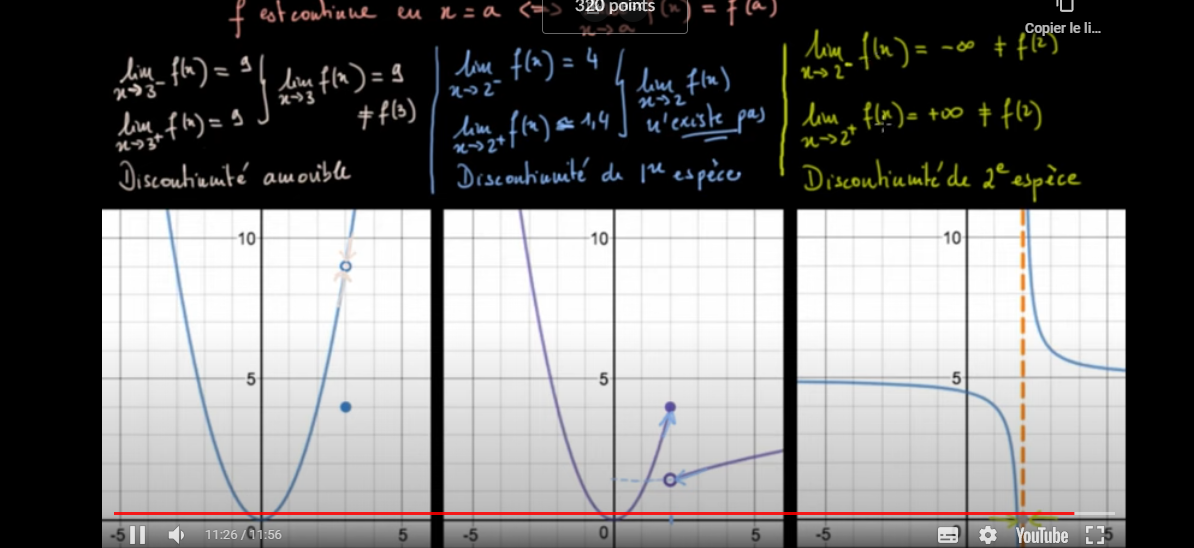 f est continue en x = a <=> f(x) = f(a)
x→a
320 points
Copier le li...
lim f(x) = 9
x→3-
lim f(x) = 9
x→3+
lim f(x) = 9
x→3
≠ f(3)
Discontinuité amovible
lim f(x) = 4
x→2-
lim f(x) ≈ 1,4
x→2+
lim f(x)
x→2
n'existe pas
Discontinuité de 1re espèce
lim f(x) = -∞ ≠ f(2)
x→2-
lim f(x) = +∞ ≠ f(2)
x→2+
Discontinuité de 2e espèce
10
5
-5 0 5
10
5
-5 0 5
10
5
-5 0 5
11:26 / 11:56
YouTube